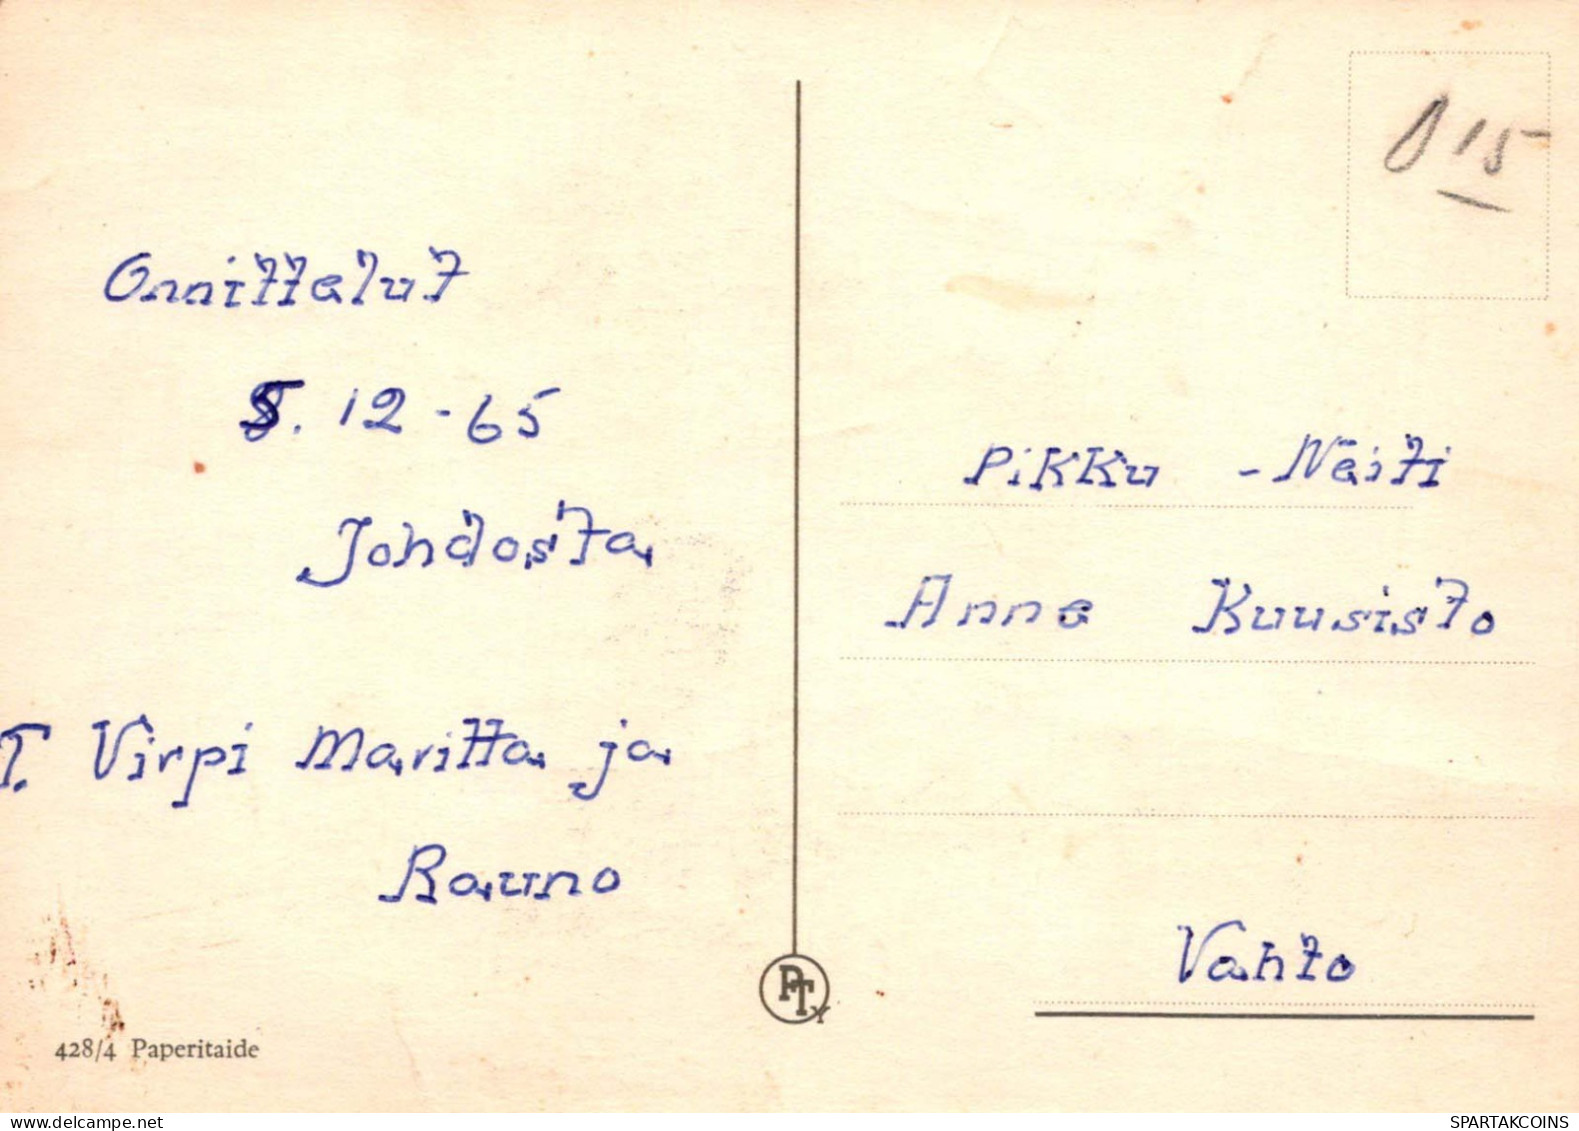 Onnittelut
5. 12 - 65
Johdosta
T. Virpi Maritta ja
Rauno
428/4 Paperitaide
PTY
15
Pikku - Neiti
Anne Kuusisto
Vahto
www.delcampe.net
SPARTAKCOINS